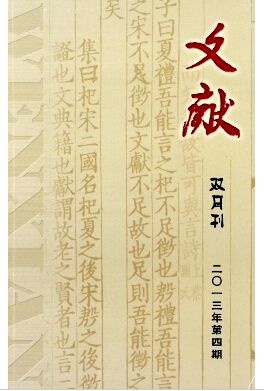 文献
双月刊
二〇一三年第四期
皆可與言詩
子曰夏禮吾能言之杞不足徵也殷禮吾能言
之宋不足徵也文獻不足故也足則吾能徵之
矣
集曰杞宋二國名杞夏之後宋殷之後徵
證也文典籍也獻謂故老之賢者也言二